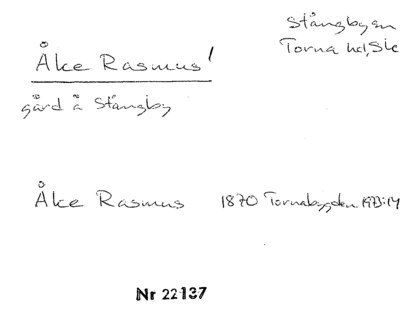 Stångby sn
Torna hd, Sk
Åke Rasmus'
gård å Stångby
Åke Rasmus 1870 Tornabygden 1973:14
Nr 22137